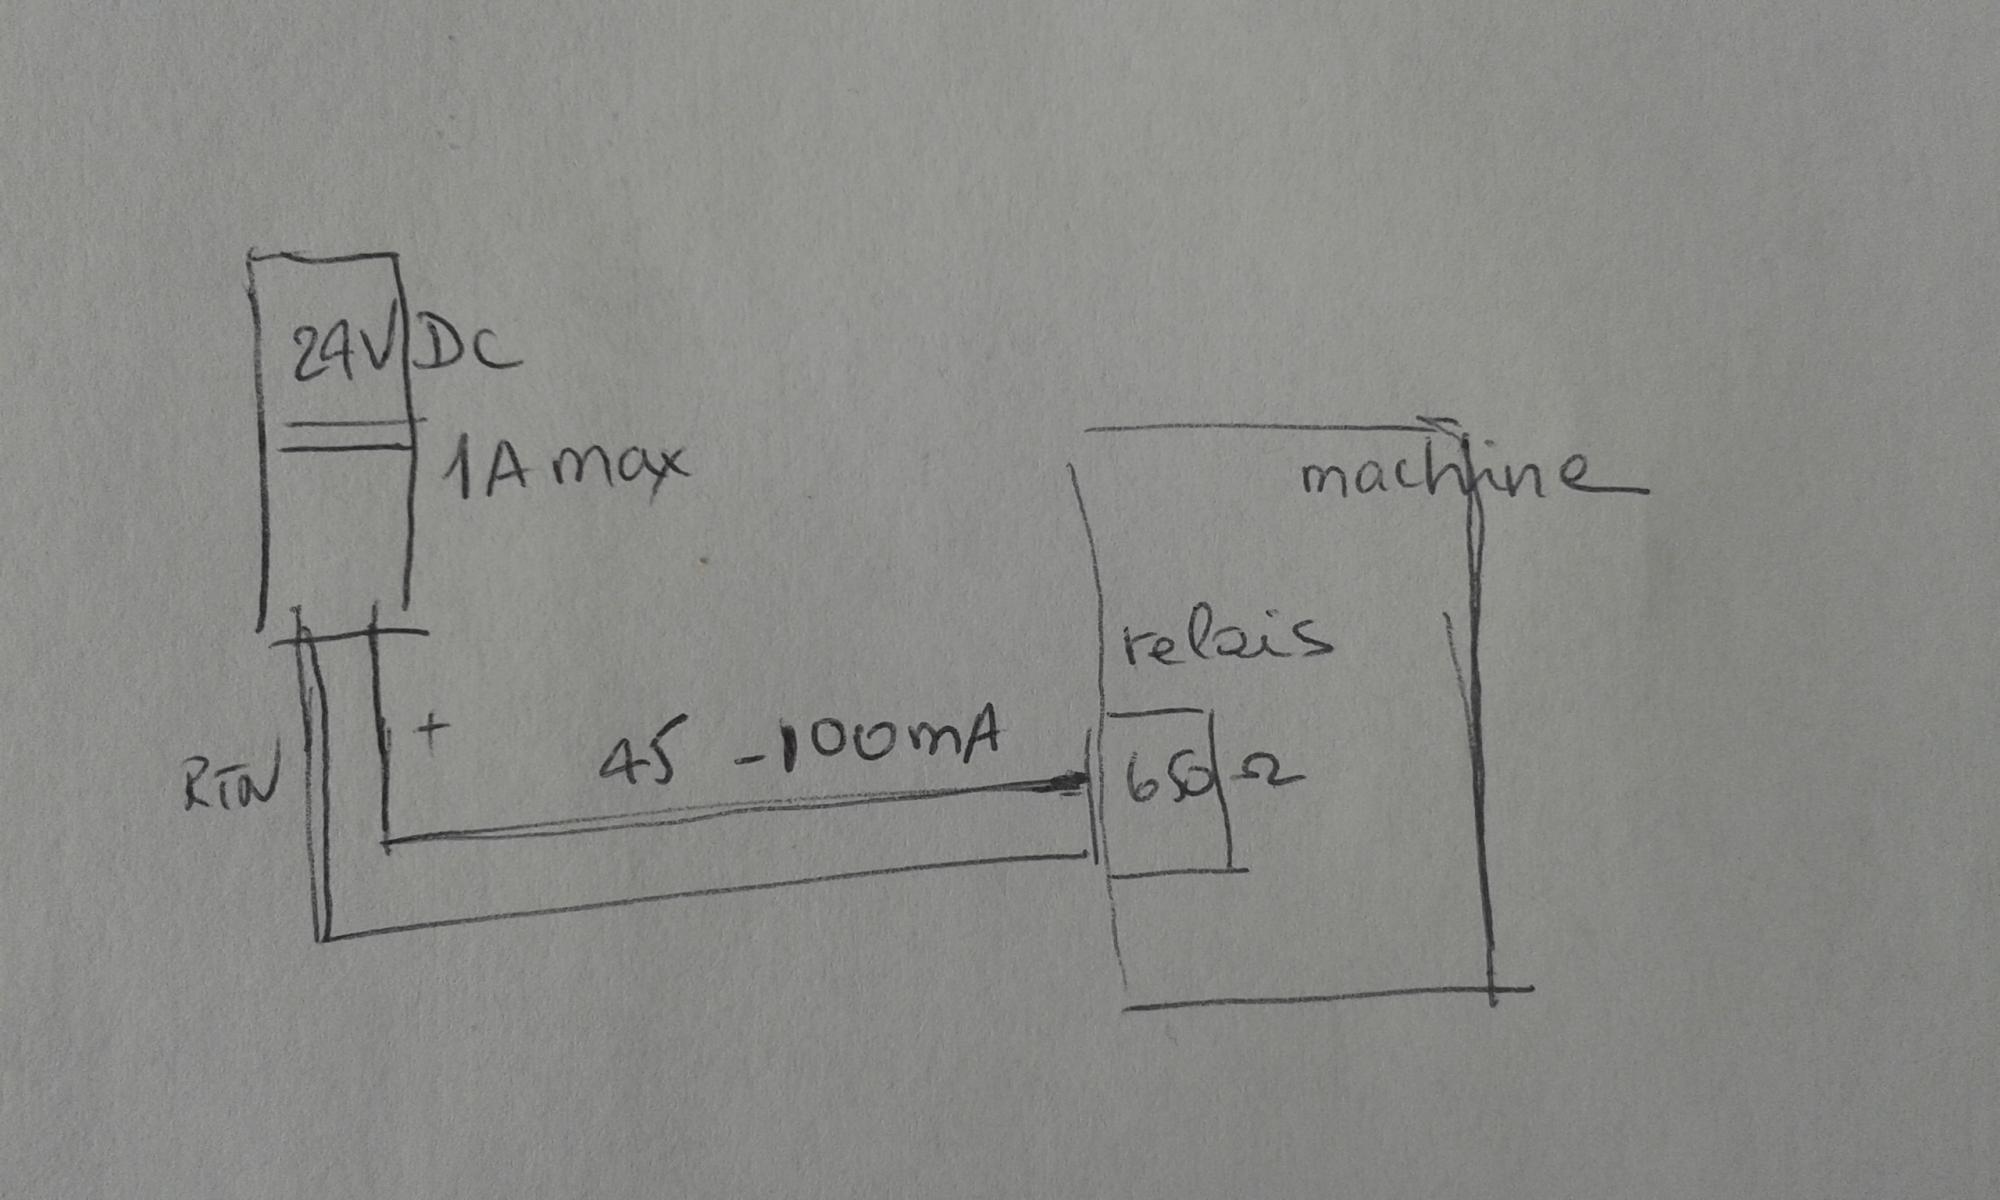 24V DC
1A max
machine
relais
+
45 - 100mA
650 Ω
RTN